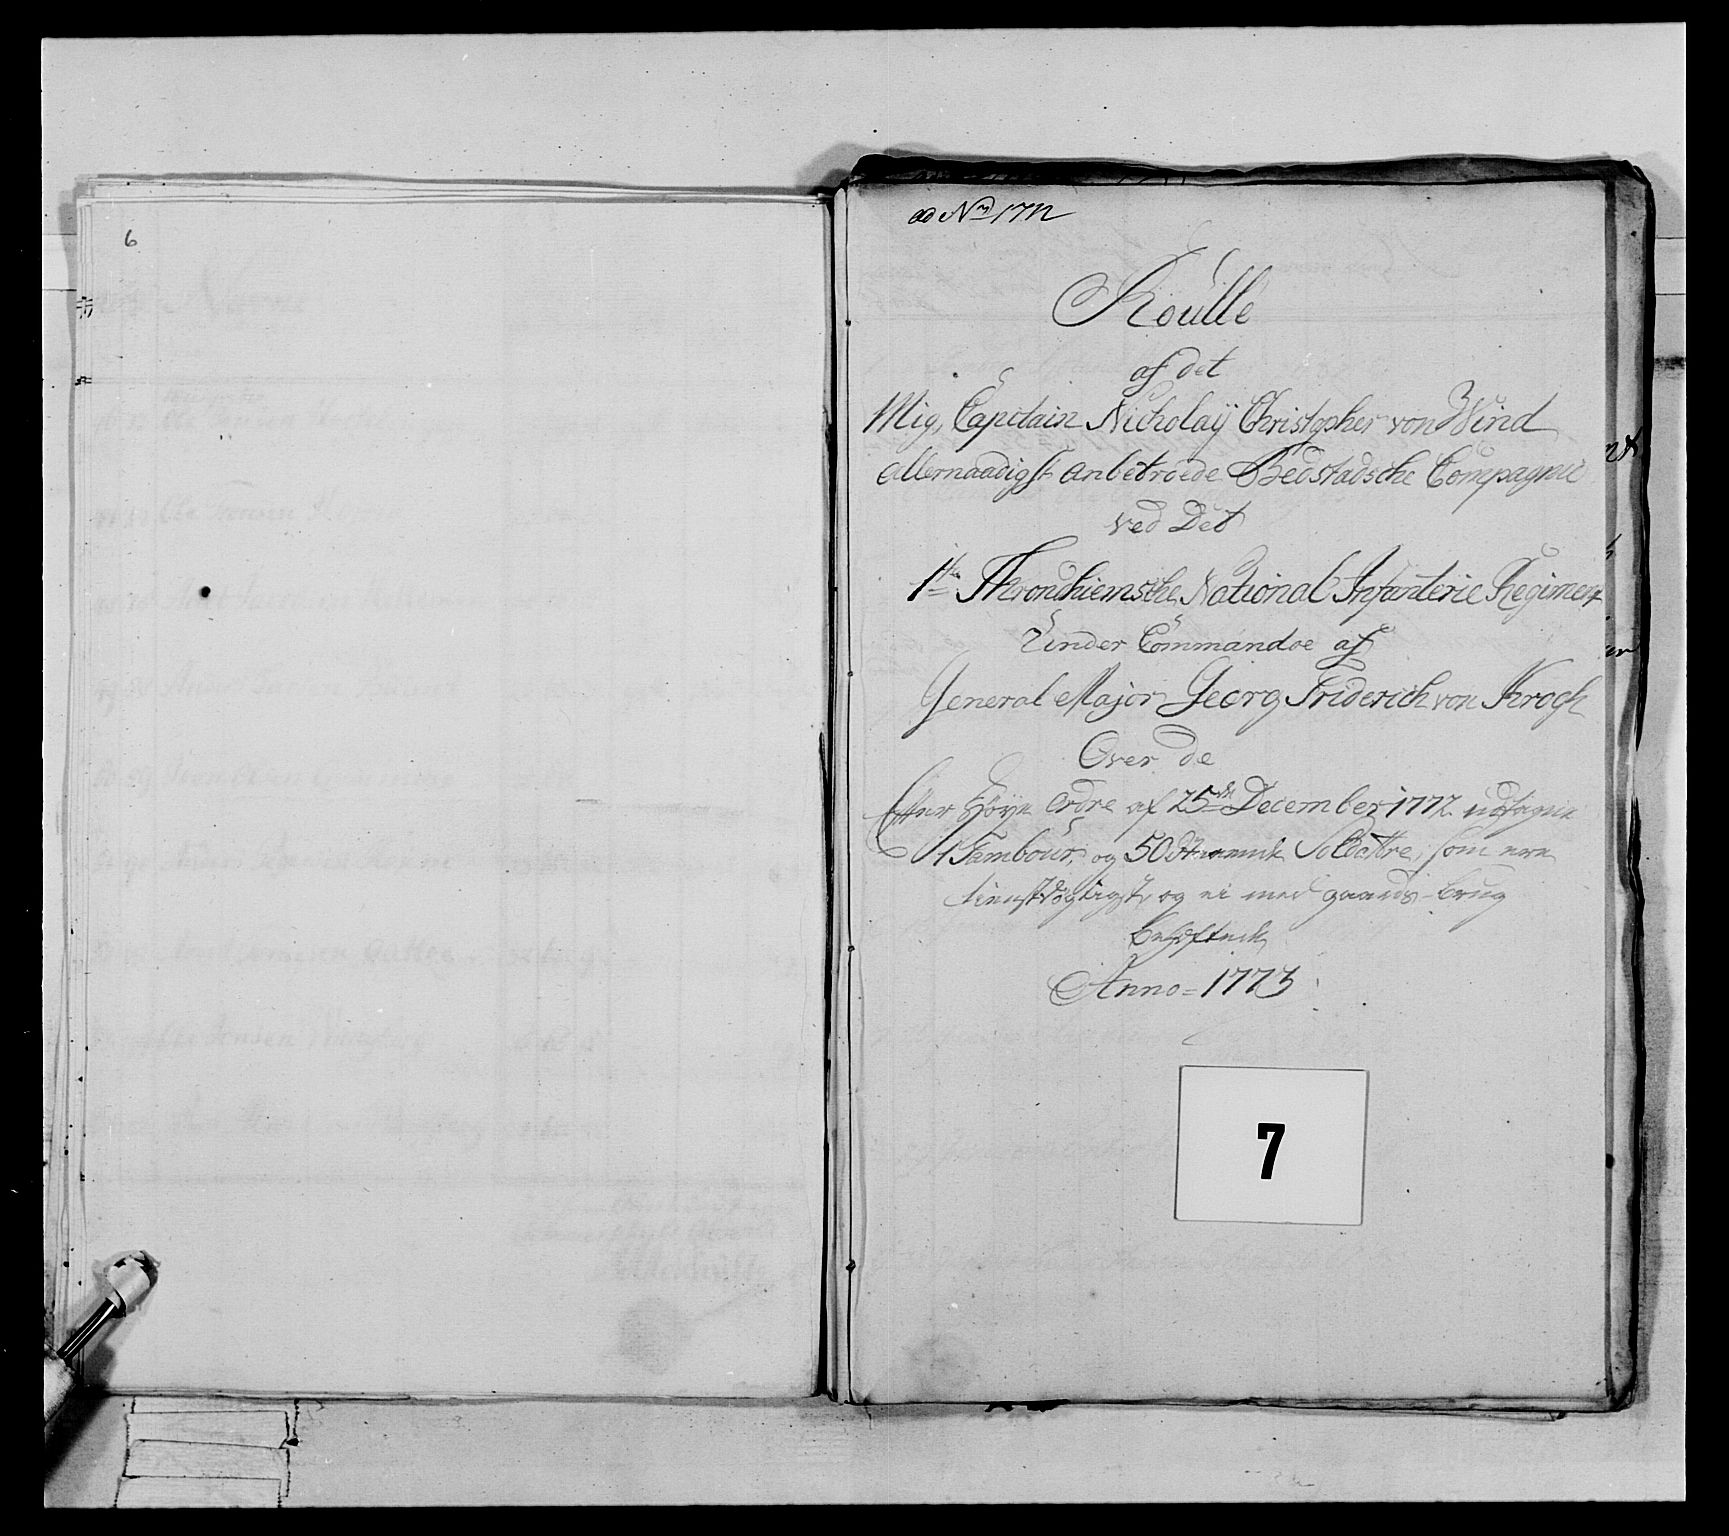 6
ad No 1772
Roulle
af det
Mig, Capitain Nicholaÿ Christopher von Wind
allernaadigst anbetroede Bedstadsche Compagnie
ved Det
1te Thronhiemske National Infanterie Regiment
Under Commandoe af
General Major Georg Friderich von Krogh
Over de
Efter Høye Ordre af 25de December 1772 udtagne
1 Tambour, og 50 Soldattre, som ere
tienstdygtigste og ei med gaards-brug
behæftede
Anno = 1773
7